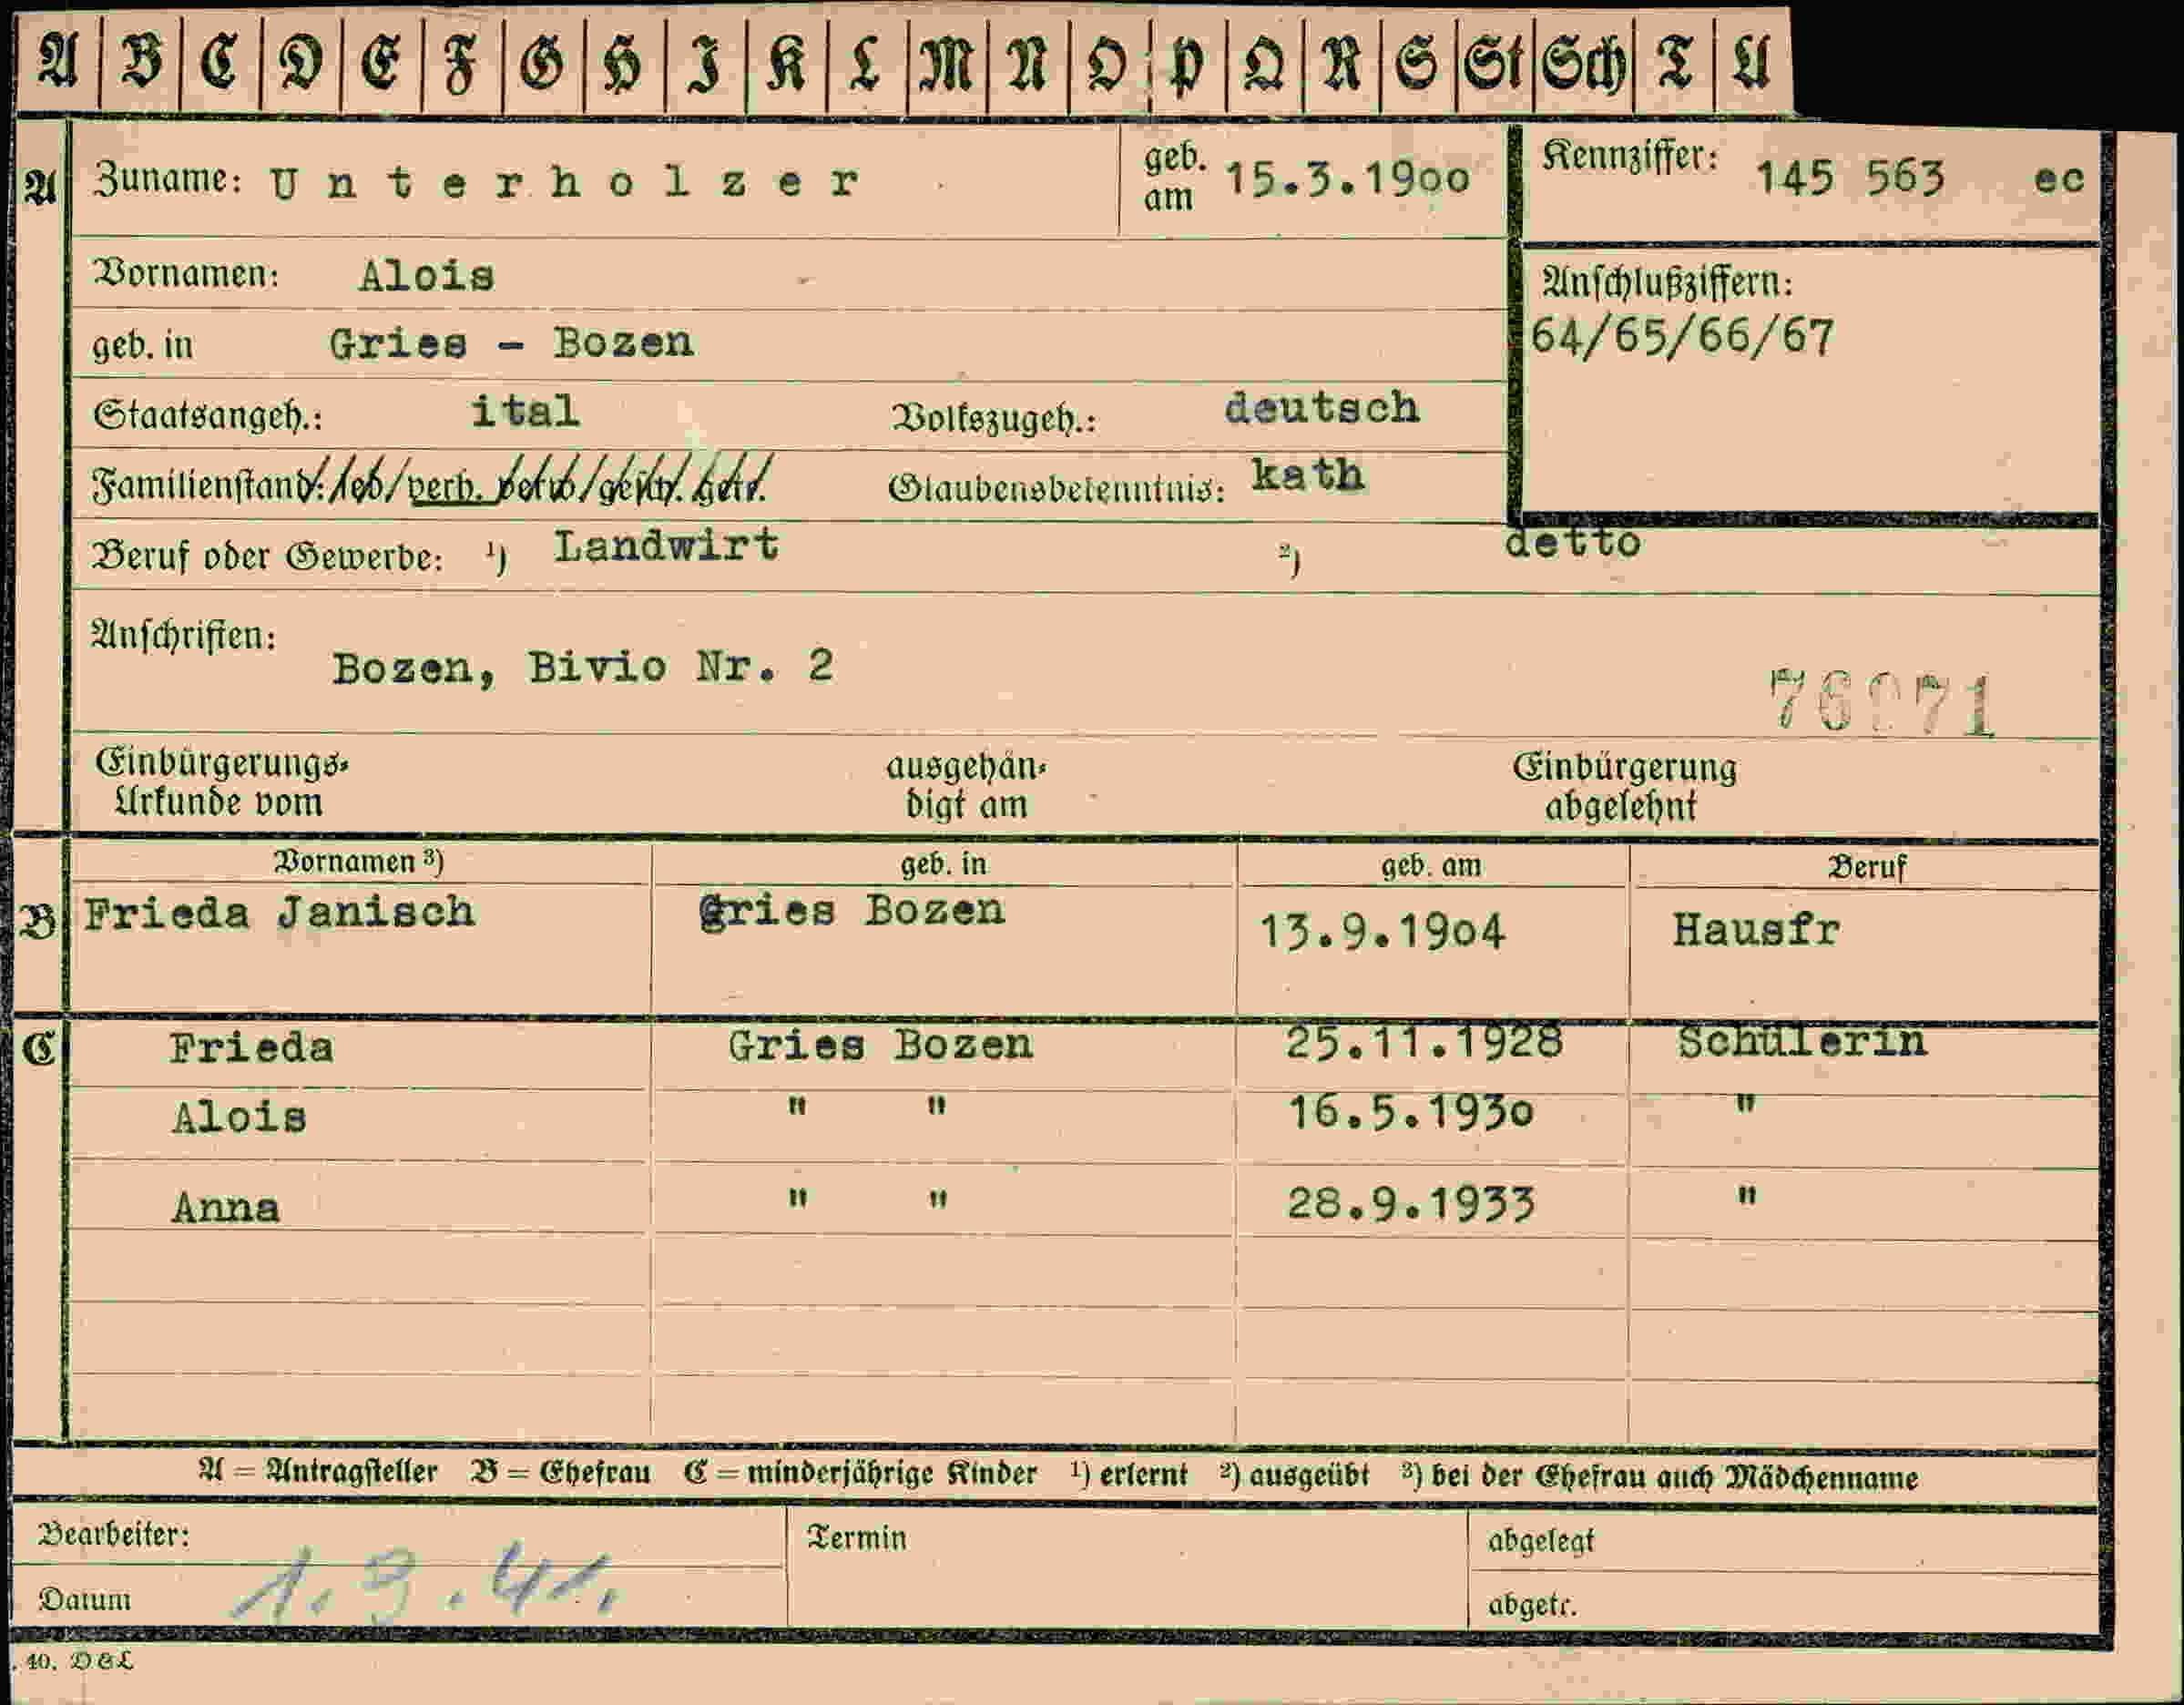 A B C D E F G H I K L M N O P Q R S St Sch T U
A Zuname: Unterholzer geb. am 15.3.1900 Kennziffer: 145 563 ec
Vornamen: Alois
Anschlußziffern:
64/65/66/67
geb. in Gries - Bozen
Staatsangeh.: ital Volkszugeh.: deutsch
Familienstand: led. verh. verw. gesch. getr. Glaubensbekenntnis: kath
Beruf oder Gewerbe: 1) Landwirt 2) detto
Anschriften:
Bozen, Bivio Nr. 2
Einbürgerungs- ausgehän- Einbürgerung
Urkunde vom digt am abgelehnt
Vornamen 3) geb. in geb. am Beruf
B Frieda Janisch Gries Bozen 13.9.1904 Hausfr
C Frieda Gries Bozen 25.11.1928 Schülerin
Alois " " 16.5.1930 "
Anna " " 28.9.1933 "
A = Antragsteller B = Ehefrau C = minderjährige Kinder 1) erlernt 2) ausgeübt 3) bei der Ehefrau auch Mädchenname
Bearbeiter: Termin abgelegt
Datum abgetr.
. 40. D&L